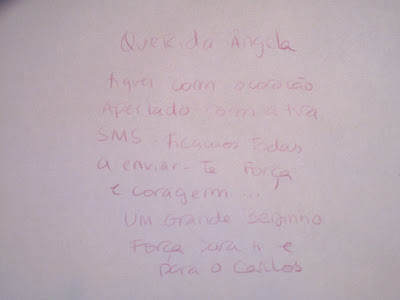 Querida Ângela
Fiquei com o coração
Apertado com a tua
SMS. Ficamos todas
a enviar-te Força
e coragem...
UM Grande Beijinho
Força para ti e
para o Carlos